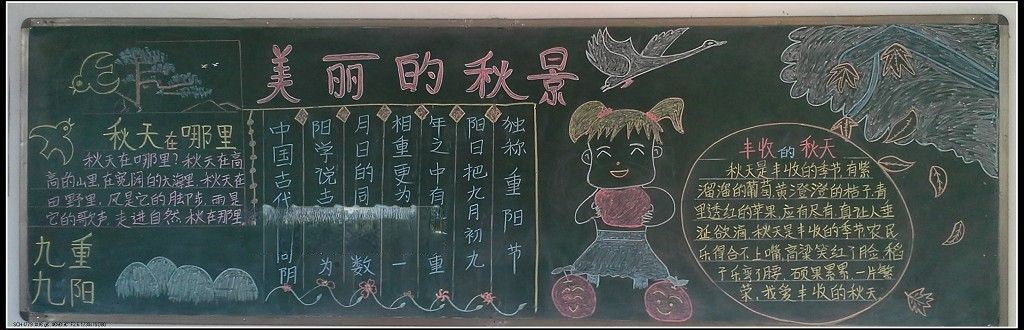 美丽的秋景
秋天在哪里
秋天在哪里?秋天在高
高的山里,在宽阔的大海里.秋天在
田野里.风是它的脚步,雨是
它的歌声.走进自然,秋在那里
九重
九阳
中国古代 阴
阳学说古 为
月日的同 数
相重更为 一
年之中有 重
阳日把九月初九
独称重阳节
丰收的秋天
秋天是丰收的季节有紫
溜溜的葡萄黄澄澄的柿子青
里透红的苹果,应有尽有,真让人垂
涎欲滴.秋天是丰收的季节农民
乐得合不上嘴,高粱笑红了脸.稻
子乐弯了脖.硕果累累,一片繁
荣.我爱丰收的秋天